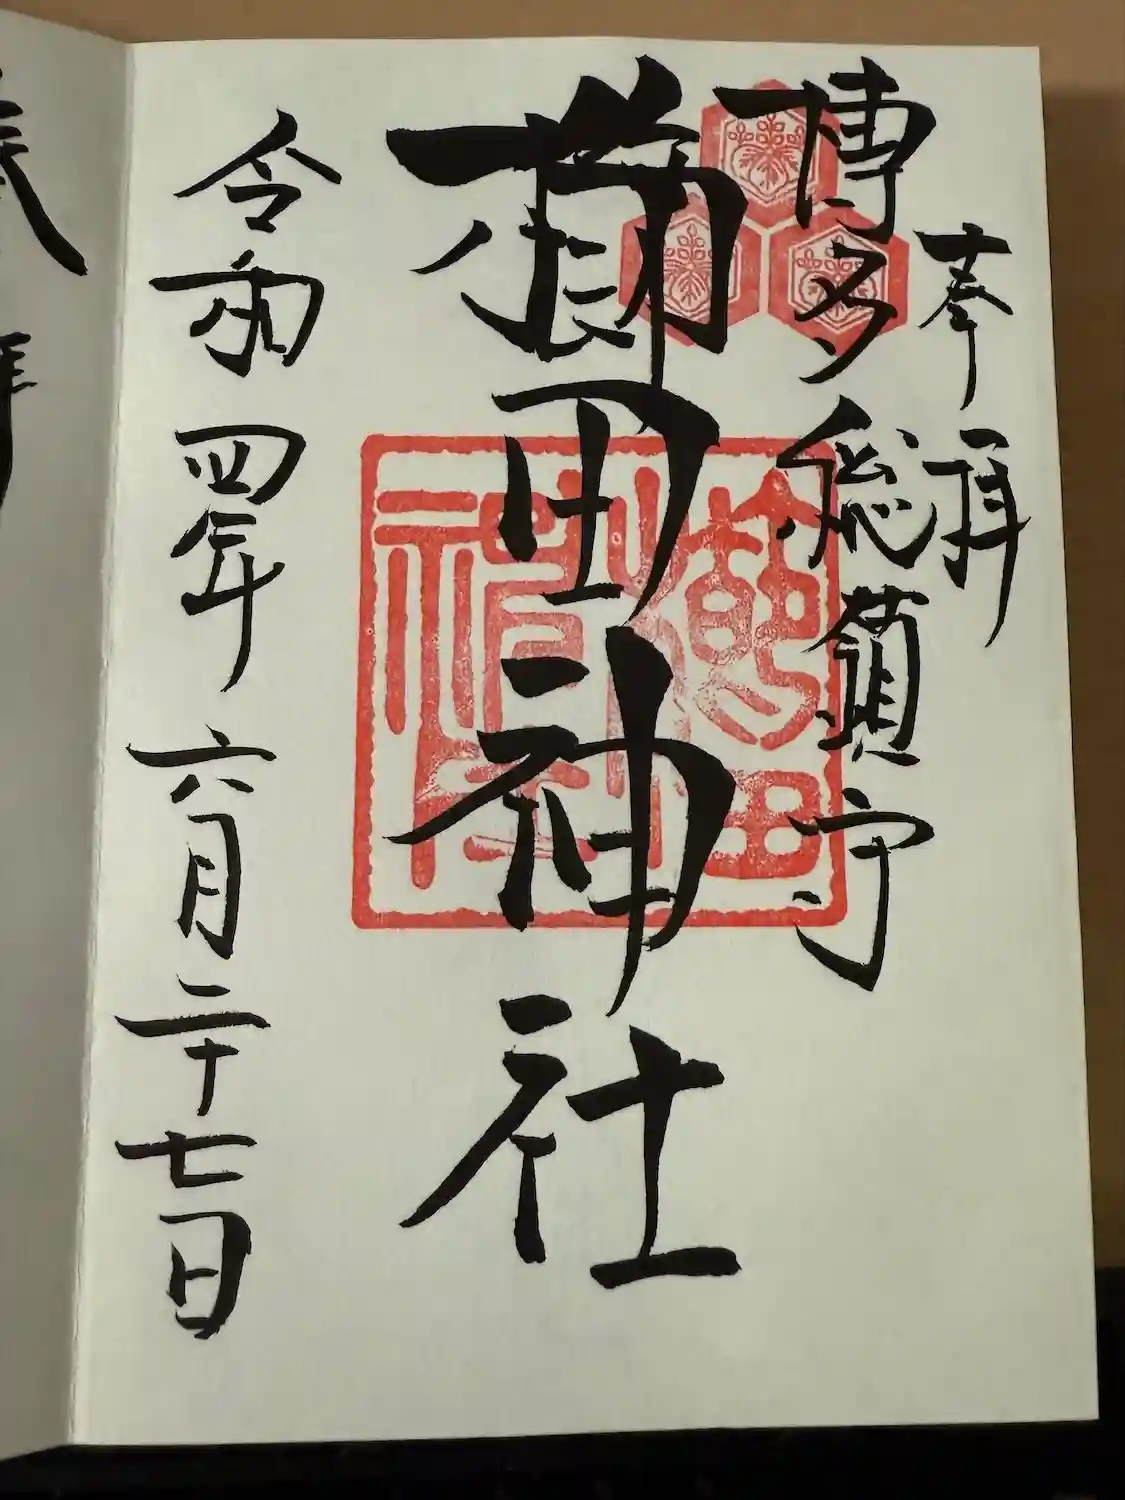 奉拝
博多総鎮守
櫛田神社
令和四年六月二十七日